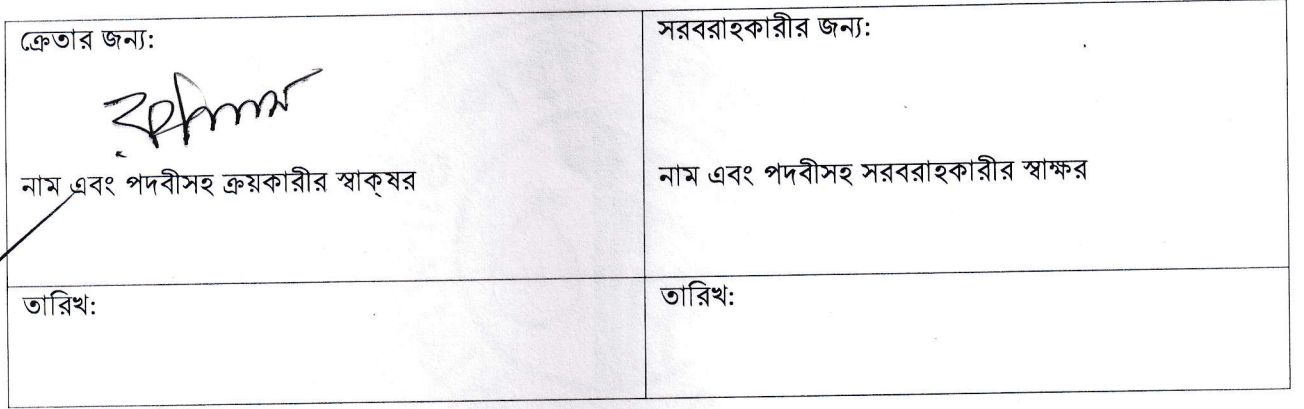 ক্রেতার জন্য:
নাম এবং পদবীসহ ক্রয়কারীর স্বাক্‌ষর
তারিখ:
সরবরাহকারীর জন্য:
নাম এবং পদবীসহ সরবরাহকারীর স্বাক্ষর
তারিখ: